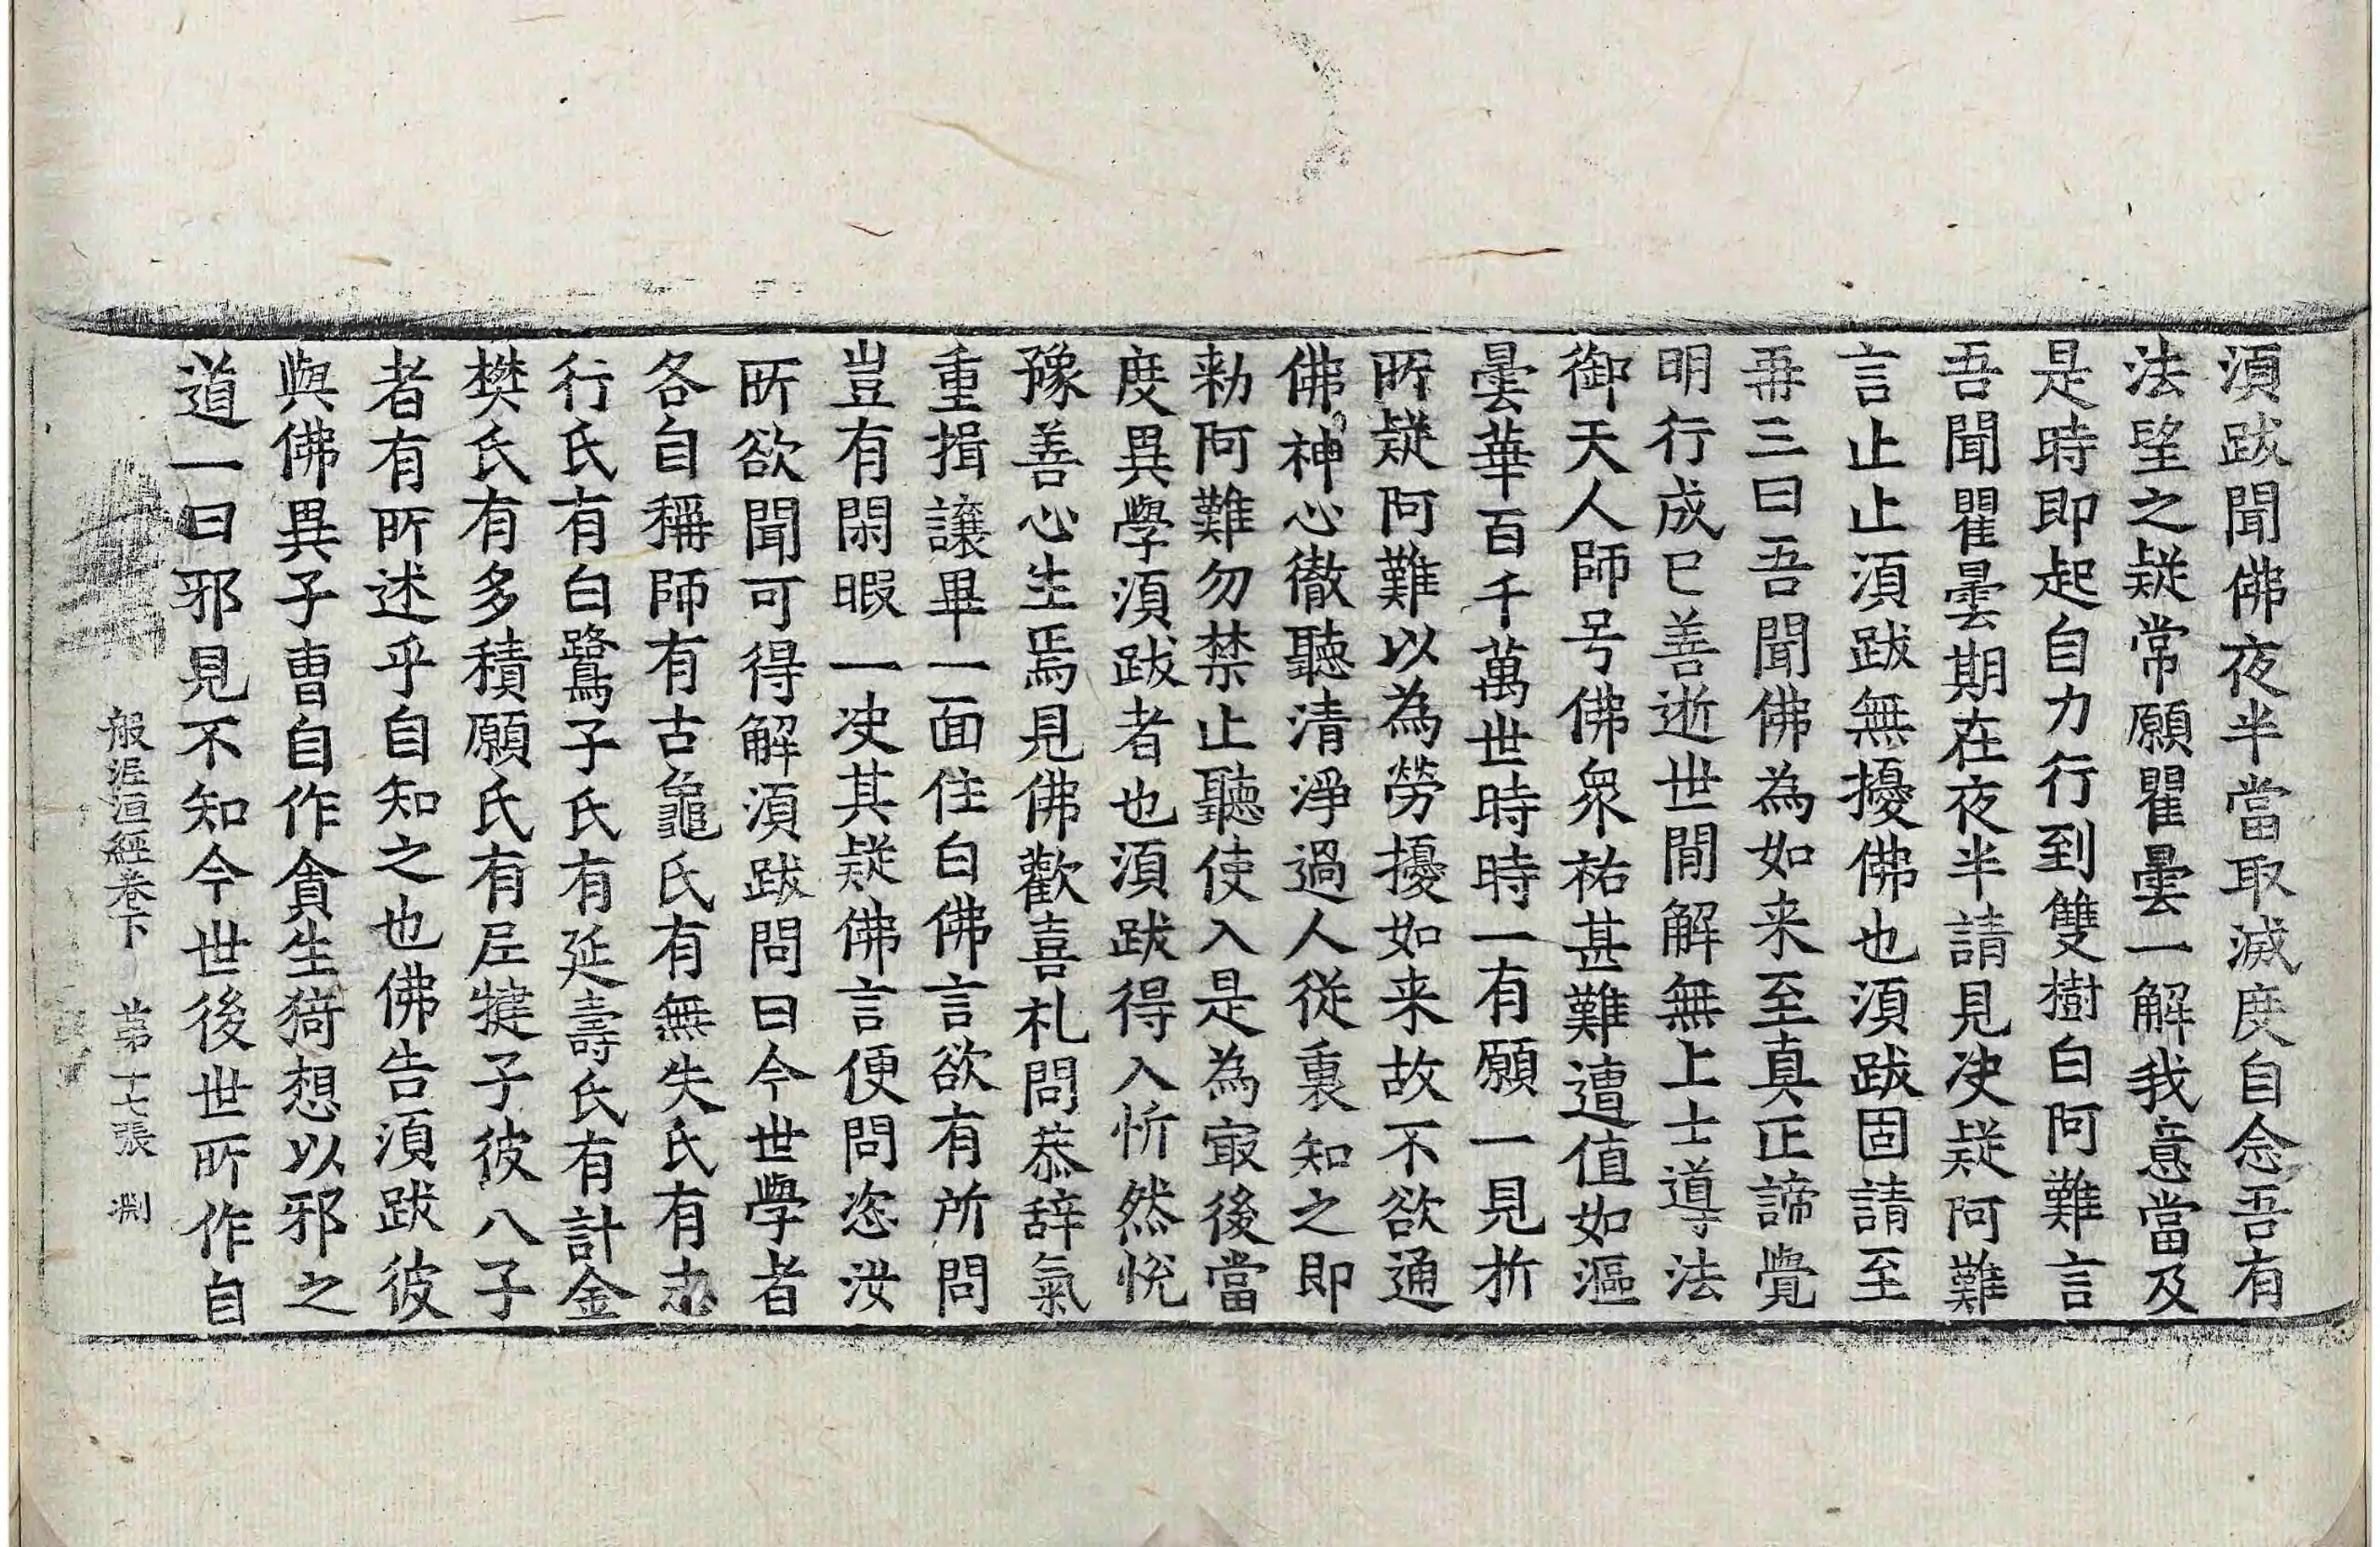 須跋聞佛夜半當取滅度自念吾有
法望之疑常願瞿曇一解我意當及
是時即起自力行到雙樹白阿難言
吾聞瞿曇期在夜半請見决疑阿難
言止止須跋無擾佛也須跋固請至
再三曰吾聞佛為如来至真正諦覺
明行成已善逝世間解無上士導法
御天人師号佛衆祐甚難遭值如漚
曇華百千萬世時時一有願一見折
所疑阿難以為勞擾如来故不欲通
佛神心徹聽清淨過人從裏知之即
勑阿難勿禁止聽使入是為㝡後當
度異學須跋者也須跋得入忻然悅
豫善心生焉見佛歡喜礼問恭辞氣
重揖讓畢一面住白佛言欲有所問
豈有閑暇一决其疑佛言便問恣汝
所欲聞可得解須跋問曰今世學者
各自稱師有古龜氏有無失氏有志
行氏有白鷺子氏有延壽氏有計金
樊氏有多積願氏有尼揵子彼八子
者有所述乎自知之也佛告須跋彼
與佛異子曹自作貪生猗想以邪之
道一曰邪見不知今世後世所作自
般泥洹經卷下　第十七張　淵